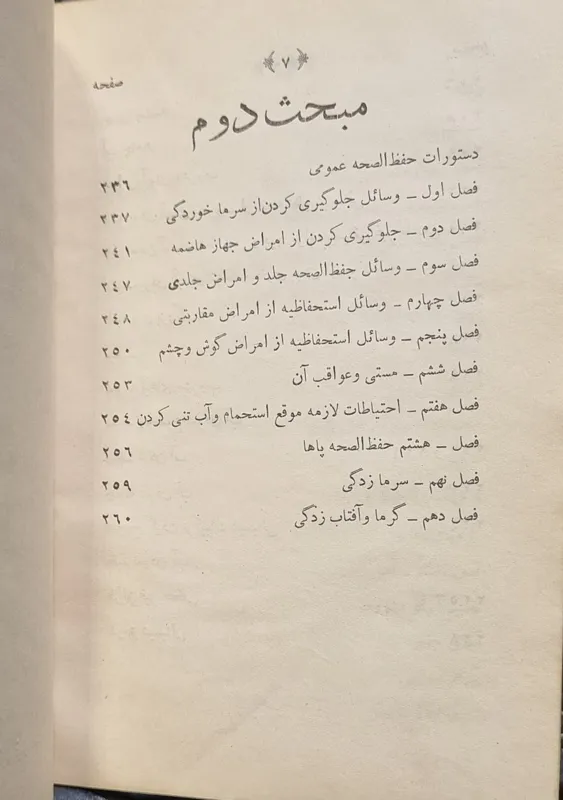 ﴿ ٧ ﴾
صفحه
مبحث دوم
دستورات حفظ‌الصحه عمومی ٢٣٦
فصل اول ــ وسائل جلوگیری کردن از سرما خوردگی ٢٣٧
فصل دوم ــ جلوگیری کردن از امراض جهاز هاضمه ٢٤١
فصل سوم ــ وسائل حفظ‌الصحه جلد و امراض جلدی ٢٤٧
فصل چهارم ــ وسائل استحفاظیه از امراض مقاربتی ٢٤٨
فصل پنجم ــ وسائل استحفاظیه از امراض گوش وچشم ٢٥٠
فصل ششم ــ مستی وعواقب آن ٢٥٣
فصل هفتم ــ احتیاطات لازمه موقع استحمام وآب تنی کردن ٢٥٤
فصل ــ هشتم حفظ‌الصحه پاها ٢٥٦
فصل نهم ــ سرما زدگی ٢٥٩
فصل دهم ــ گرما وآفتاب زدگی ٢٦٠